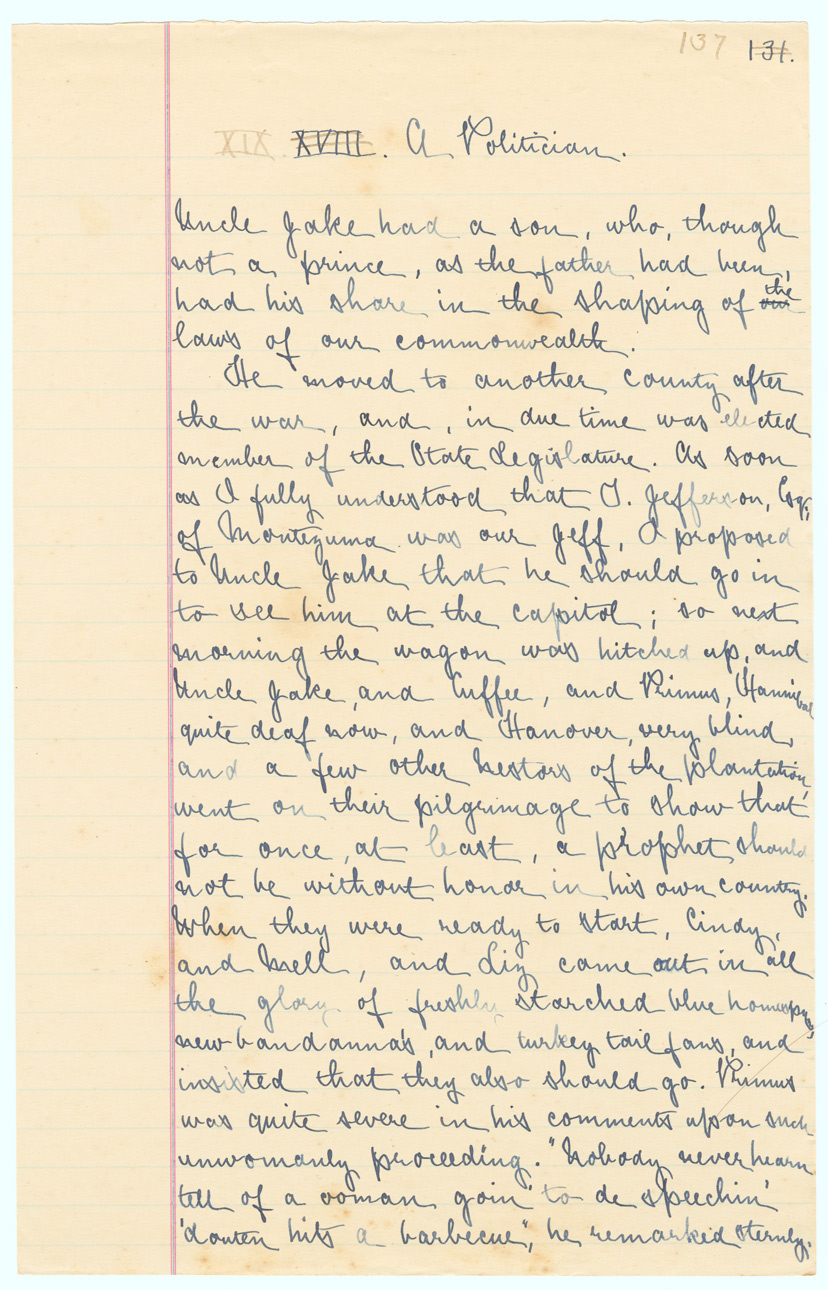 137 131.
XIX. XVIII. A Politician.
Uncle Jake had a son, who, though
not a prince, as the father had been,
had his share in the shaping of our the
laws of our commonwealth.
He moved to another county after
the war, and, in due time was elected
member of the State Legislature. As soon
as I fully understood that T. Jefferson, Esq.,
of Montezuma was our Jeff, I proposed
to Uncle Jake that he should go in
to see him at the capitol; so next
morning the wagon was hitched up, and
Uncle Jake, and Cuffee, and Primus, Hannibal
quite deaf now, and Hanover, very blind,
and a few other Nestors of the plantation,
went on their pilgrimage to show that
for once, at least, a prophet should
not be without honor in his own country.
When they were ready to start, Cindy,
and Nell, and Liz came out in all
the glory of freshly starched blue homespun,
new bandanna's, and turkey tail fans, and
insisted that they also should go. Primus
was quite severe in his comments upon such
unwomanly proceeding. "Nobody never hearn
tell of a 'oman goin' to de speechin'
'douten hits a barbecue", he remarked sternly.